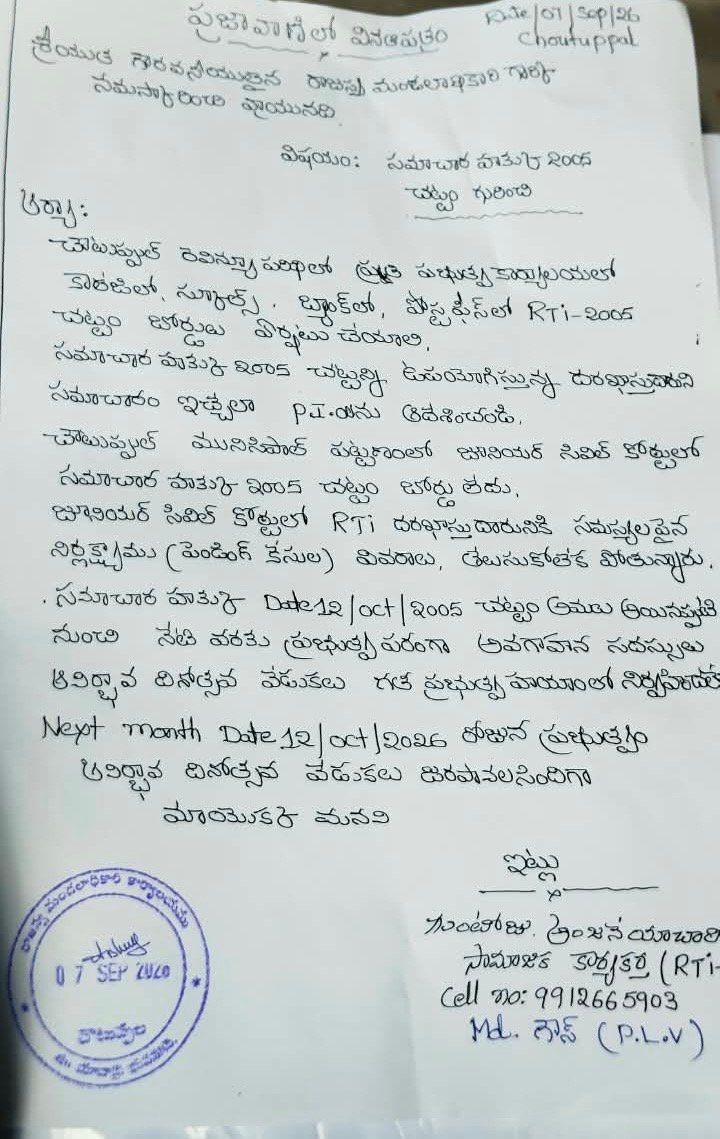 ప్రజావాణిలో వినతిపత్రం
Date/07/Sep/26
Choutuppal
శ్రీయుత గౌరవనీయులైన రాజస్వ మండలాధికారి గారికి
నమస్కారించి వ్రాయునది.
విషయం: సమాచార హక్కు 2005
చట్టం గురించి
ఆర్యా:
చౌటుప్పల్ రెవిన్యూ పరిధిలో ప్రతి ప్రభుత్వ కార్యాలయంలో
కాలేజిలో, స్కూల్స్, బ్యాంక్‌లో, పోస్టఫీస్‌లో RTi-2005
చట్టం బోర్డులు ఏర్పాటు చేయాలి,
సమాచార హక్కు 2005 చట్టాన్ని ఉపయోగిస్తున్న దరఖాస్తుదారుని
సమాచారం ఇచ్చేలా P.I.ఓను ఆదేశించండి,
చౌటుప్పల్ మునిసిపాల్ పట్టణంలో జూనియర్ సివిల్ కోర్టులో
సమాచార హక్కు 2005 చట్టం బోర్డు లేదు,
జూనియర్ సివిల్ కోర్టులో RTi దరఖాస్తుదారునికి సమస్యలపైన
నిర్లక్ష్యాము (పెండింగ్ కేసుల) వివరాలు, తెలుసుకోలేక పోతున్నారు.
. సమాచార హక్కు Date 12/oct/2005 చట్టం అమలు అయినప్పటి
నుంచి నేటి వరకు ప్రభుత్వ పరంగా అవగాహన సదస్సులు
ఆవిర్భావ దినోత్సవ వేడుకలు గత ప్రభుత్వ హయాంలో
Next month Date 12/oct/2026 రోజున ప్రభుత్వం
ఆవిర్భావ దినోత్సవ వేడుకలు జరపావలసిందిగా
మాయొక్క మనవి
ఇట్లు
గుంటోజు. ఆంజనేయాచారి
సామాజిక కార్యకర్త (RTi-
Cell no: 9912665903
Md. గౌస్ (P.L.V)
రాజస్వ మండలాధికారి కార్యాలయము
07 SEP 2026
చౌటుప్పల